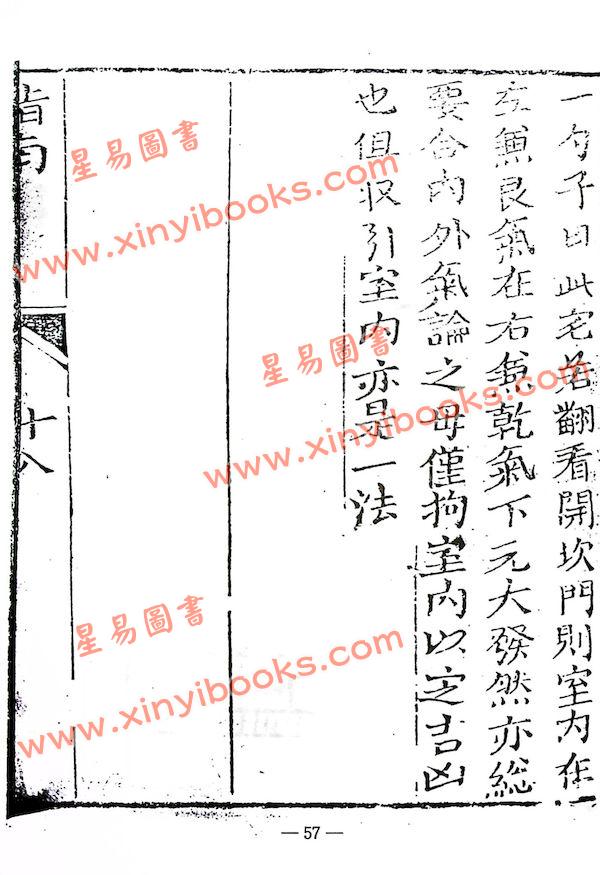 一勺子曰此宅若翻看開坎門則室內在
左兼艮氣在右兼乾氣下元大發然亦總
要合內外氣論之毋僅拘室內以定吉凶
也但収引室內亦是一法
指南
十八
星易圖書
www.xinyibooks.com
星易圖書
www.xinyibooks.com
星易圖書
www.xinyibooks.com
— 57 —